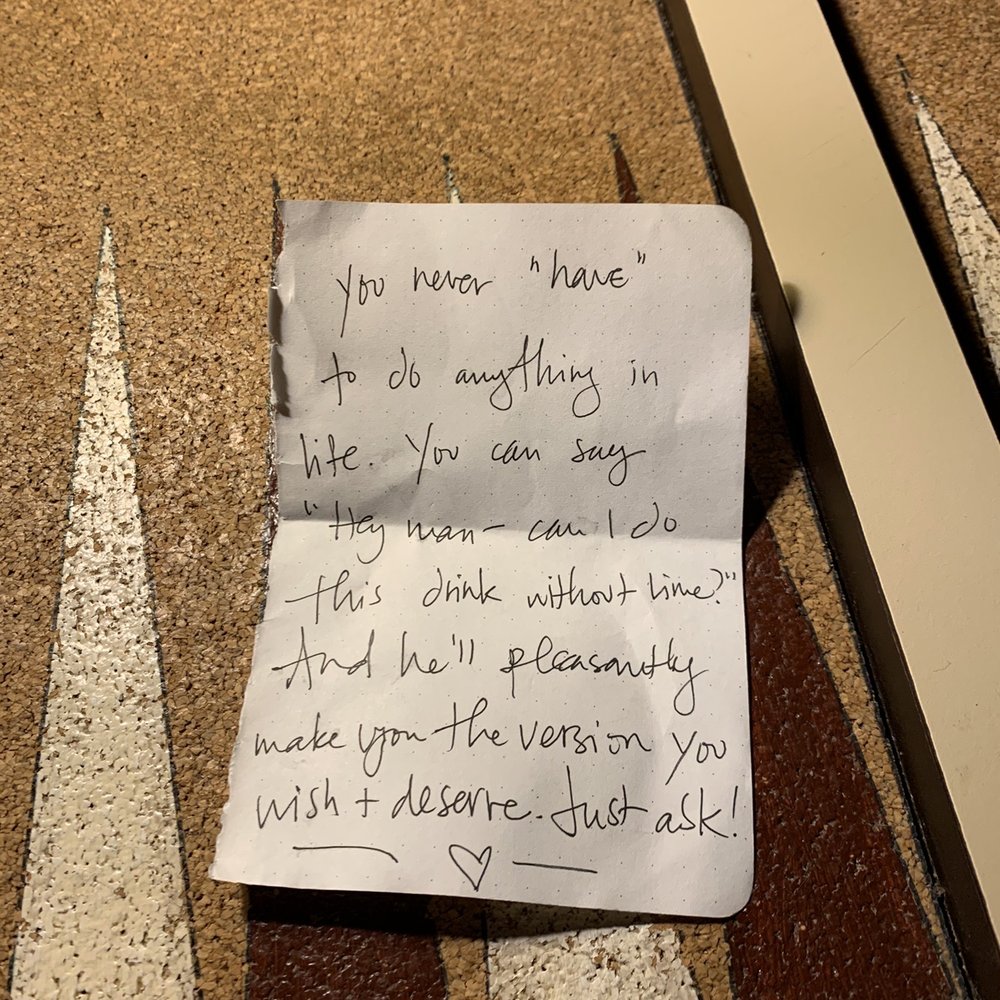 you never "have"
to do anything in
life. You can say
"Hey man – can I do
this drink without lime?"
And he'll pleasantly
make you the version you
wish + deserve. Just ask!